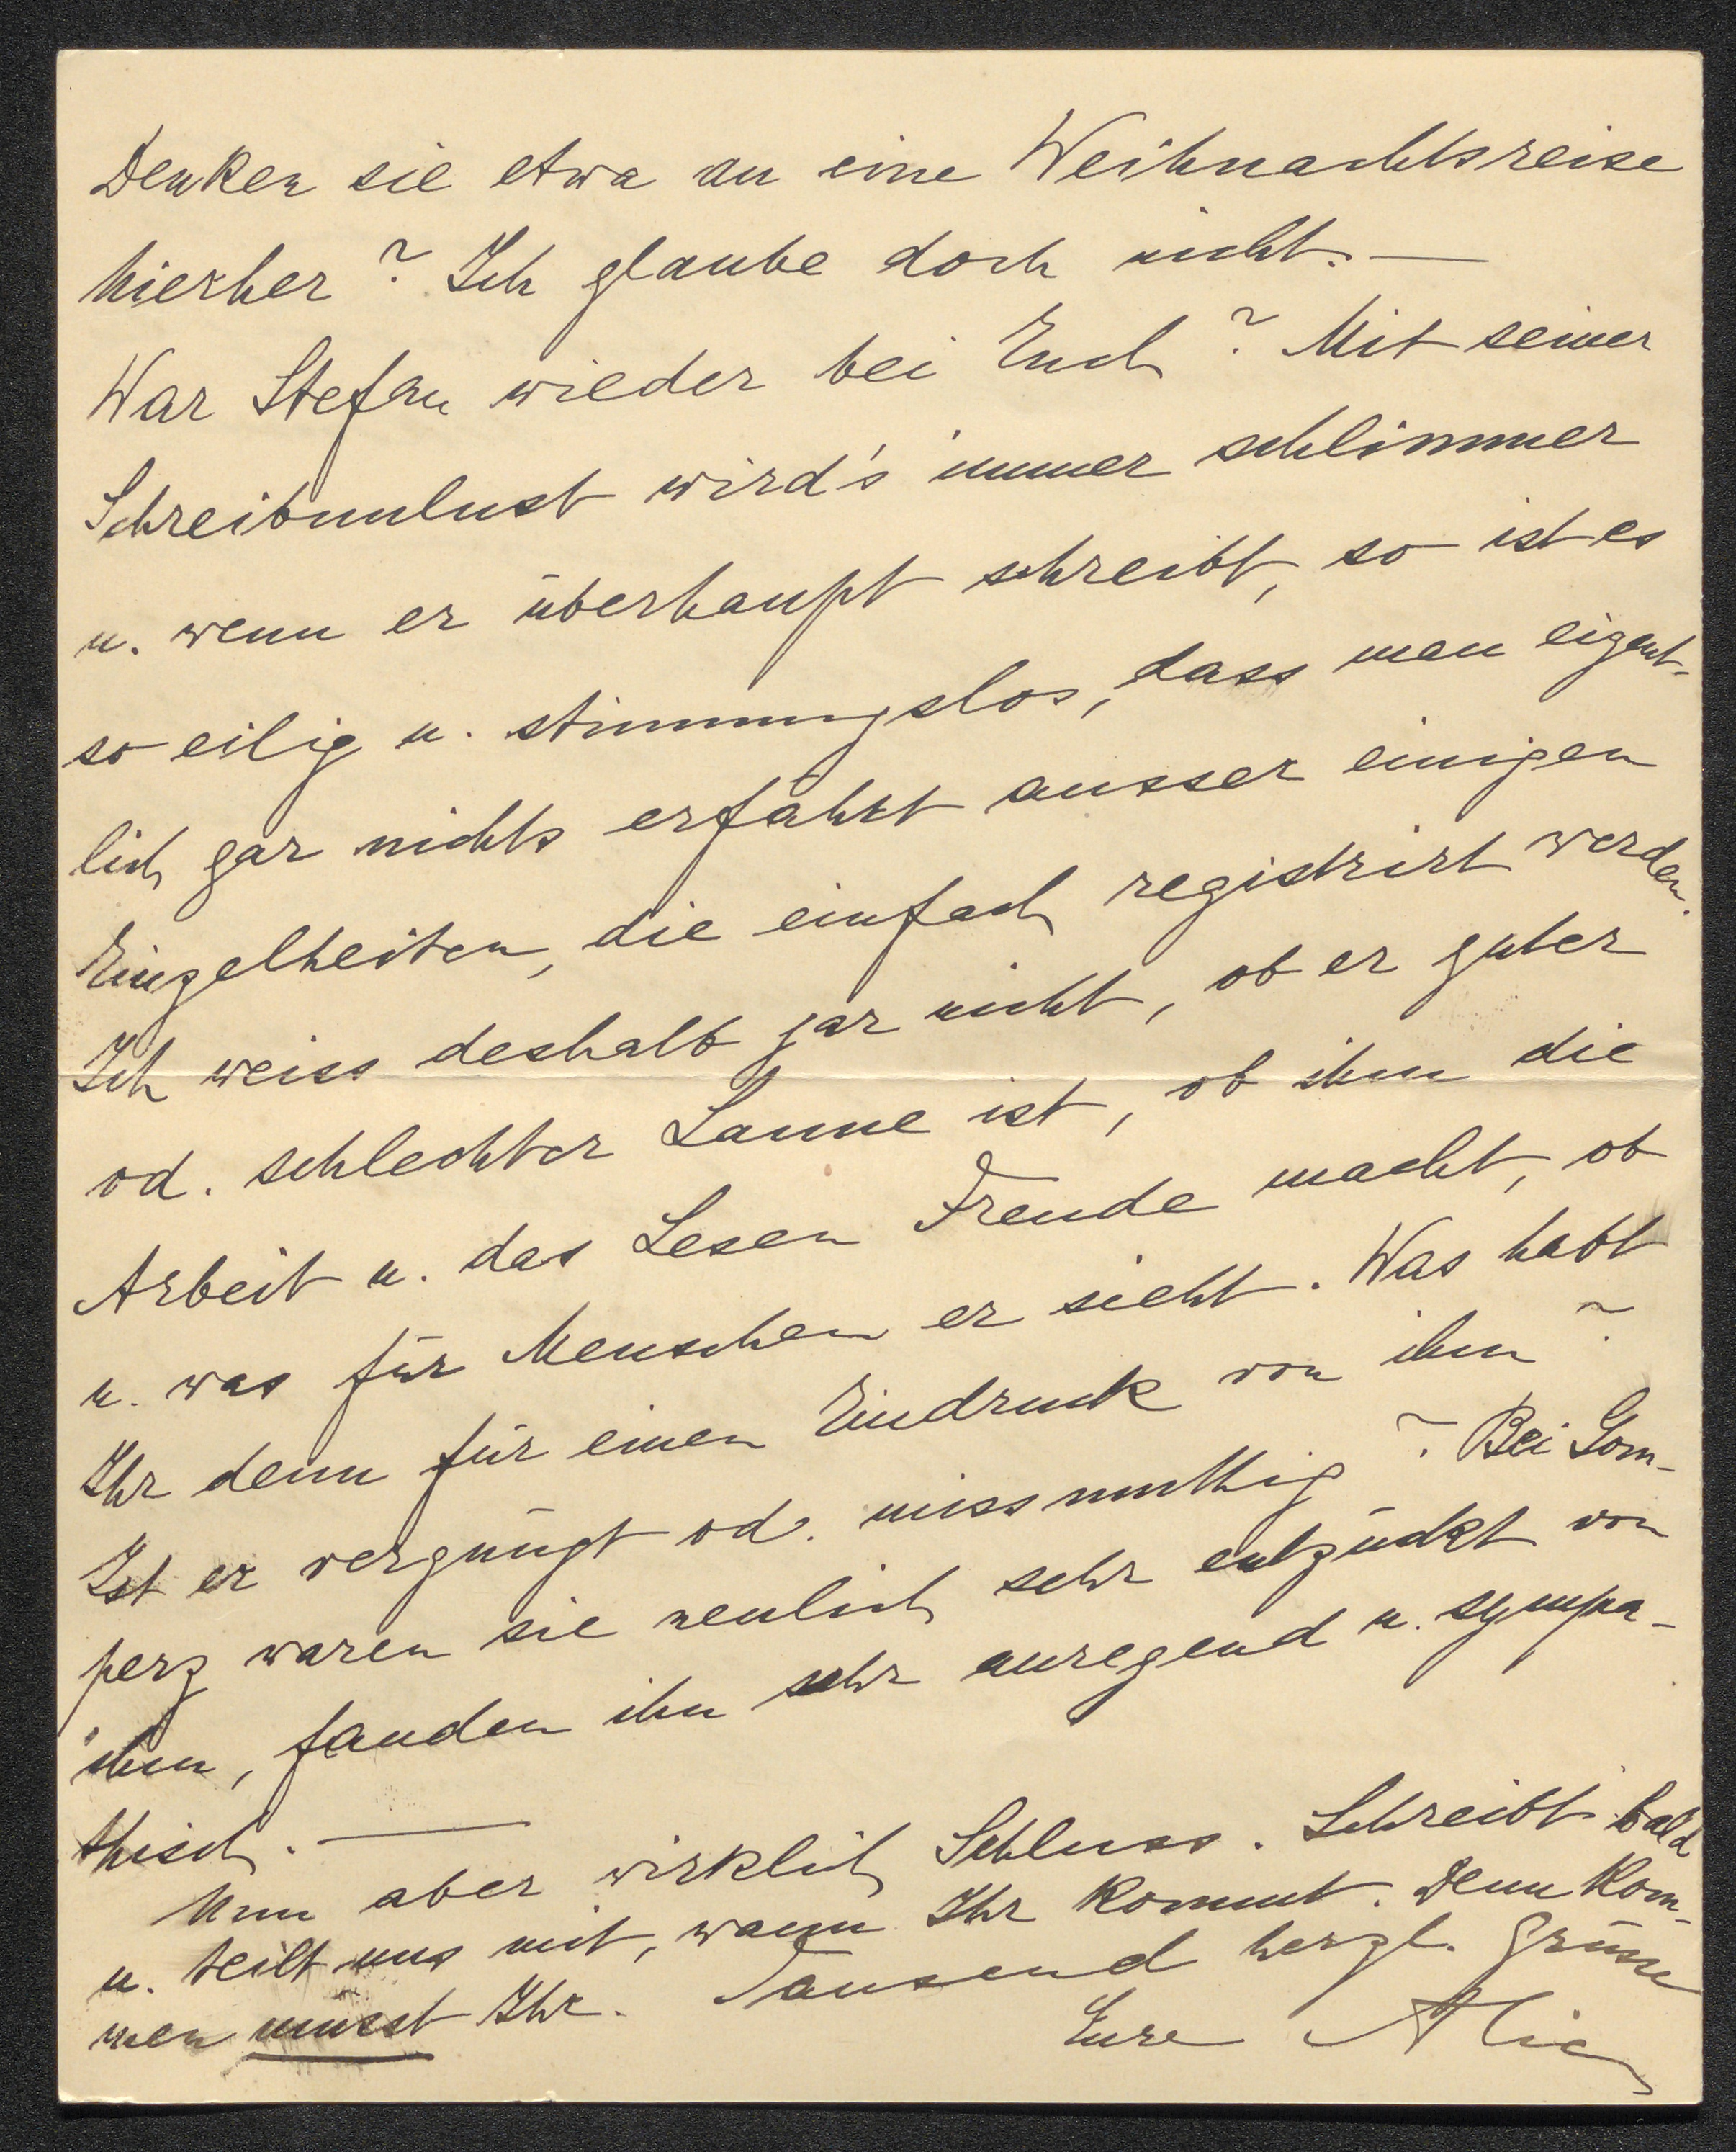 Denken sie etwa an eine Weihnachtsreise
hierher? Ich glaube doch nicht. —
War Stefan wieder bei Euch? Mit seiner
Schreibunlust wird's immer schlimmer
u. wenn er überhaupt schreibt, so ist es
so eilig u. stimmungslos, dass man eigent-
lich gar nichts erfährt ausser einigen
Einzelheiten, die einfach registrirt werden.
Ich weiss deshalb gar nicht, ob er guter
od. schlechter Laune ist, ob ihm die
Arbeit u. das Lesen Freude macht, ob
u. was für Menschen er sieht. Was habt
Ihr denn für einen Eindruck von ihm?
Ist er vergnügt od. missmuthig? Bei Gom-
perz waren sie neulich sehr entzückt von
ihm, fanden ihn sehr anregend u. sympa-
thisch. —
Nun aber wirklich Schluss. Schreibt bald
u. teilt uns mit, wann Ihr kommt. Denn kom-
men müsst Ihr. Tausend herzl. Grüsse
Eure